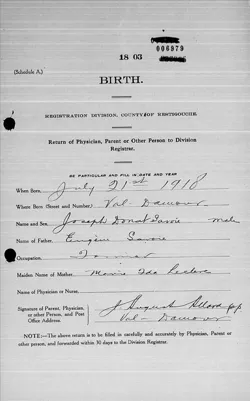 18 03
006979
(Schedule A.)
BIRTH.
REGISTRATION DIVISION, COUNTY OF RESTIGOUCHE.
Return of Physician, Parent or Other Person to Division
Registrar.
BE PARTICULAR AND FILL IN DATE AND YEAR
When Born, July 21st 1918
Where Born (Street and Number) Val Damour
Name and Sex, Joseph Donat Savoie male
Name of Father, Eugène Savoie
Occupation, Farmer
Maiden Name of Mother, Marie Ida Leclerc
Name of Physician or Nurse,
Signature of Parent, Physician,
or other Person, and Post
Office Address.
J. August Allard
Val-Damour
NOTE:—The above return is to be filled in carefully and accurately by Physician, Parent or
other person, and forwarded within 30 days to the Division Registrar.